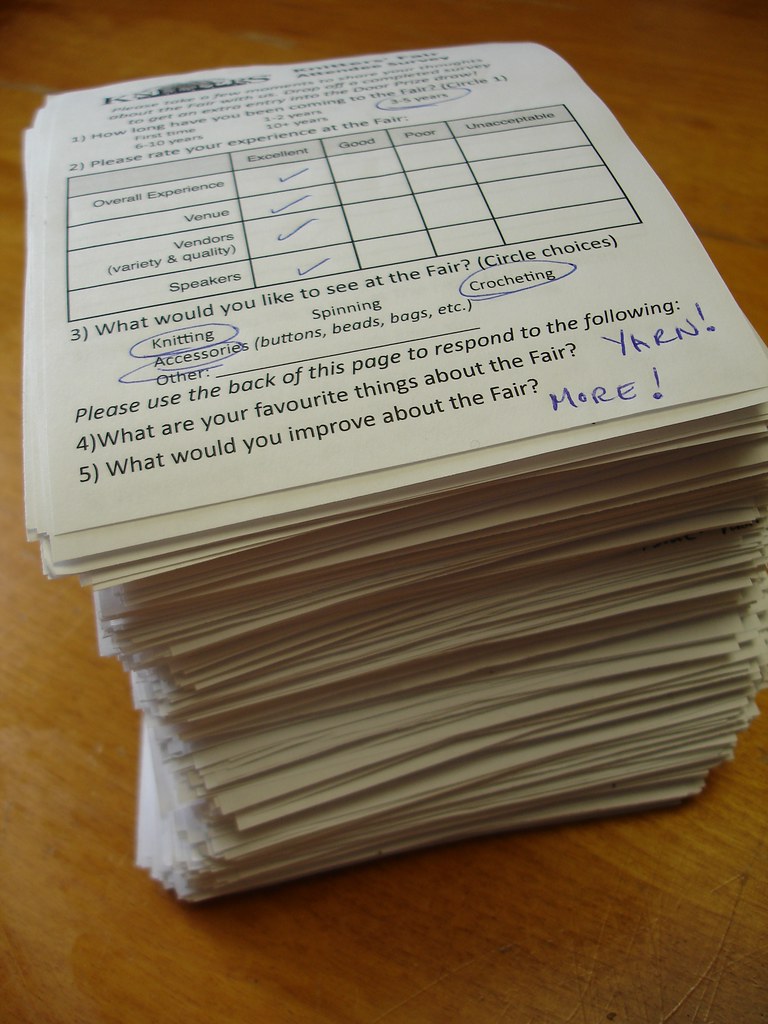 Knitters' Fair
Attendee Survey
Please take a few moments to share your thoughts
about the Fair with us. Drop off a completed survey
To get an extra entry into the Door Prize draw!
1) How long have you been coming to the Fair? (Circle 1)
First time 1-2 years 3-5 years
6-10 years 10+ years
2) Please rate your experience at the Fair:
Excellent Good Poor Unacceptable
Overall Experience ✓
Venue ✓
Vendors
(variety & quality) ✓
Speakers ✓
3) What would you like to see at the Fair? (Circle choices)
Knitting Spinning Crocheting
Accessories (buttons, beads, bags, etc.)
Other:
Please use the back of this page to respond to the following:
4)What are your favourite things about the Fair? YARN!
5) What would you improve about the Fair? MORE!